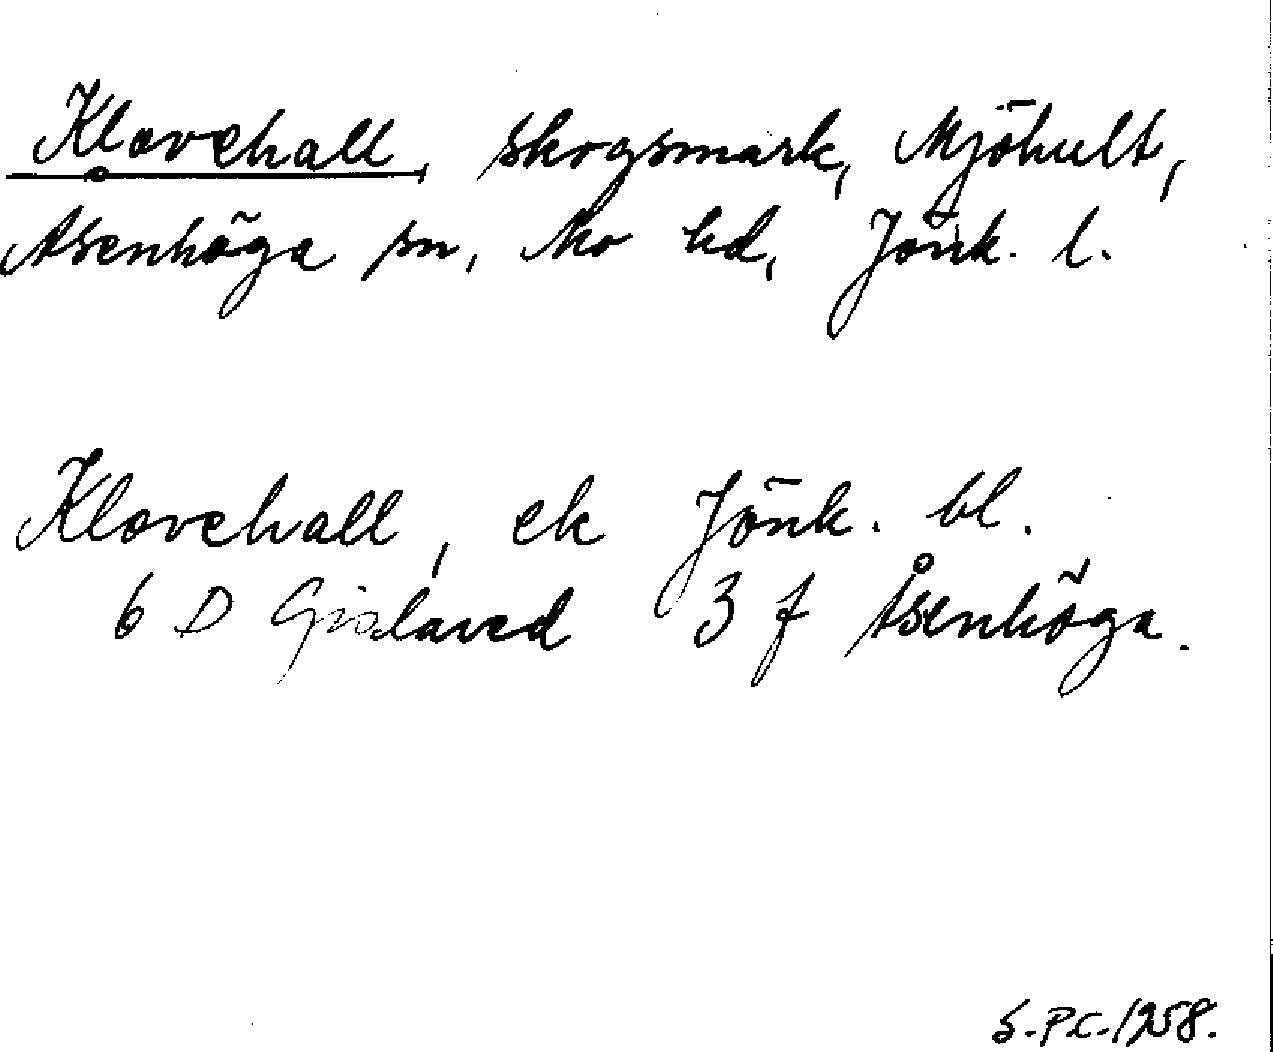 Klovehall, skogsmark, Mjöhult,
Åsenhöga sn, Mo hd, Jönk. l.
Klovehall, ek Jönk. bl.
6 D Gislaved 3 f Åsenhöga.
S.P.C. 1958.